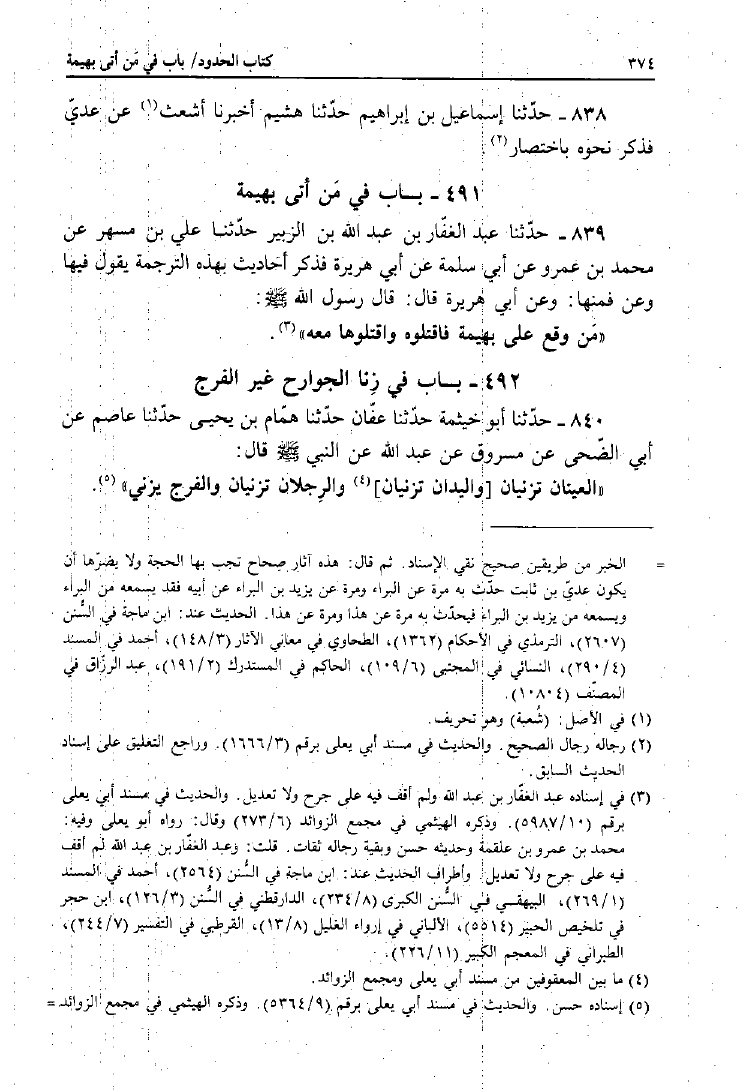 ٣٧٤ كتاب الحدود/ باب في مَن أتى بهيمة
٨٣٨ - حدّثنا إسماعيل بن إبراهيم حدّثنا هشيم أخبرنا أشعث(١) عن عديّ
فذكر نحوه باختصار(٢)
٤٩١ - بـاب في مَن أتى بهيمة
٨٣٩ - حدّثنا عبد الغفّار بن عبد الله بن الزبير حدّثنـا علي بن مسهر عن
محمد بن عمرو عن أبي سلمة عن أبي هريرة فذكر أحاديث بهذه الترجمة يقول فيها
وعن فمنها: وعن أبي هريرة قال: قال رسول الله ﷺ:
«مَن وقع على بهيمة فاقتلوه واقتلوها معه»(٣).
٤٩٢ - بـاب في زِنا الجوارح غير الفرج
٨٤٠ - حدّثنا أبو خيثمة حدّثنا عفّان حدّثنا همّام بن يحيـى حدّثنا عاصم عن
أبي الضّحى عن مسروق عن عبد الله عن النبي ﷺ قال:
«العينان تزنيان [واليدان تزنيان](٤) والرِجلان تزنيان والفرج يزني»(٥).
= الخبر من طريقين صحيح نقي الإسناد. ثم قال: هذه آثار صحاح تجب بها الحجة ولا يضرّها أن
يكون عديّ بن ثابت حدّث به مرة عن البراء ومرة عن يزيد بن البراء عن أبيه فقد يسمعه من البراء
ويسمعه من يزيد بن البراء فيحدّث به مرة عن هذا ومرة عن هذا. الحديث عند: ابن ماجة في السُّنن
(٢٦٠٧)، الترمذي في الأحكام (١٣٦٢)، الطحاوي في معاني الآثار (١٤٨/٣)، أحمد في المسند
(٢٩٠/٤)، النسائي في المجتبى (١٠٩/٦)، الحاكم في المستدرك (١٩١/٢)، عبد الرزّاق في
المصنّف (١٠٨٠٤).
(١) في الأصل: (شُعبة) وهو تحريف.
(٢) رجاله رجال الصحيح. والحديث في مسند أبي يعلى برقم (١٦٦٦/٣). وراجع التعليق على إسناد
الحديث السابق.
(٣) في إسناده عبد الغفّار بن عبد الله ولم أقف فيه على جرح ولا تعديل. والحديث في مسند أبي يعلى
برقم (٥٩٨٧/١٠). وذكره الهيثمي في مجمع الزوائد (٢٧٣/٦) وقال: رواه أبو يعلى وفيه:
محمد بن عمرو بن علقمة وحديثه حسن وبقية رجاله ثقات. قلت: وعبد الغفّار بن عبد الله لم أقف
فيه على جرح ولا تعديل. وأطراف الحديث عند: ابن ماجة في السُّنن (٢٥٦٤)، أحمد في المسند
(٢٦٩/١)، البيهقي فـي السُّنن الكبرى (٢٣٤/٨)، الدارقطني في السُّنن (١٢٦/٣)، ابن حجر
في تلخيص الحبير (٥٥١٤)، الألباني في إرواء الغليل (١٣/٨)، القرطبي في التفسير (٢٤٤/٧)،
الطبراني في المعجم الكبير (٢٢٦/١١).
(٤) ما بين المعقوفين من مسند أبي يعلى ومجمع الزوائد.
(٥) إسناده حسن. والحديث في مسند أبي يعلى برقم (٥٣٦٤/٩). وذكره الهيثمي في مجمع الزوائد =